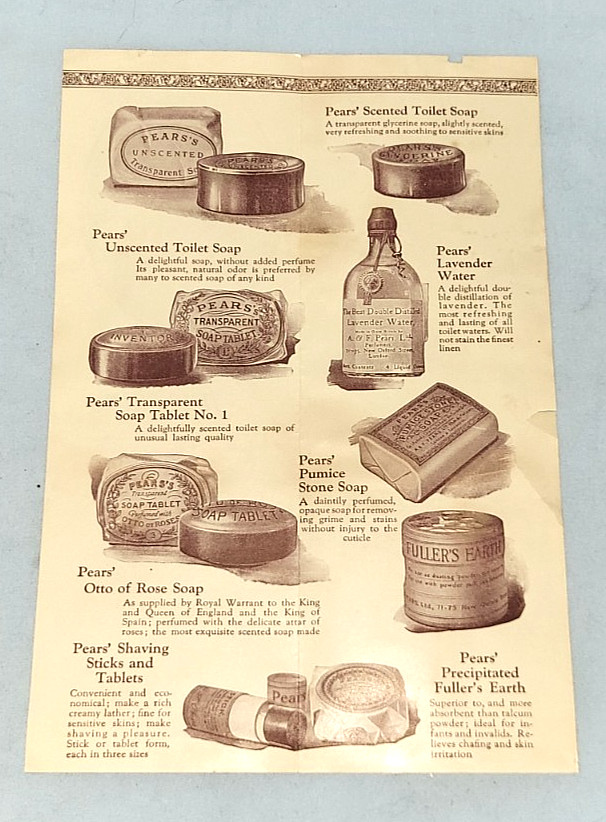 PEARS'S
UNSCENTED
Transparent
PEARS'S
Pears' Scented Toilet Soap
A transparent glycerine soap, slightly scented,
very refreshing and soothing to sensitive skins
PEARS'S
GLYCERINE
Pears'
Unscented Toilet Soap
A delightful soap, without added perfume
Its pleasant, natural odor is preferred by
many to scented soap of any kind
Pears'
Lavender
Water
A delightful dou-
ble distillation of
lavender. The
most refreshing
and lasting of all
toilet waters. Will
not stain the finest
linen
The Best Double Distilled
Lavender Water,
A. & F. Pears Ltd.
New Oxford Street,
London
Contents 4 Liquid
INVENTOR
PEARS'S
TRANSPARENT
SOAP TABLET
Pears' Transparent
Soap Tablet No. 1
A delightfully scented toilet soap of
unusual lasting quality
PEARS'S
Transparent
SOAP TABLET
Perfumed with
OTTO OF ROSES
3
SOAP TABLET
Pears'
Pumice
Stone Soap
A daintily perfumed,
opaque soap for remov-
ing grime and stains
without injury to the
cuticle
Pears'
Otto of Rose Soap
As supplied by Royal Warrant to the King
and Queen of England and the King of
Spain; perfumed with the delicate attar of
roses; the most exquisite scented soap made
FULLER'S EARTH
Ltd, 71-75 New Oxford
Pears' Shaving
Sticks and
Tablets
Convenient and eco-
nomical; make a rich
creamy lather; fine for
sensitive skins; make
shaving a pleasure.
Stick or tablet form,
each in three sizes
Pears
Pears'
Precipitated
Fuller's Earth
Superior to, and more
absorbent than talcum
powder; ideal for in-
fants and invalids. Re-
lieves chafing and skin
irritation